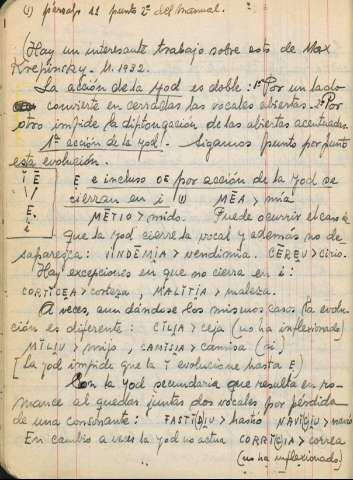 (1) párrafo 11 punto 2º del manual.
(Hay un interesante trabajo sobre esto de Max
Krepinsky. M. 1932.
La acción de la yod es doble: 1º Por un lado
convierte en cerradas las vocales abiertas. 2º Por
otro impide la diptongación de las abiertas acentuadas.
1ª acción de la yod. Sigamos punto por punto
esta evolución.
Ĭ Ē
\ /
Ẹ
i
Ẹ e incluso OE por acción de la yod se
cierran en i (1) MĒA > mía
METIO > mido. Puede ocurrir el caso de
que la yod cierre la vocal y además no de-
saparesca: VINDĒMIA > vendimia. CĒREU > cirio.
Hay excepciones en que no cierra en i:
CORTICEA > corteza, MALITIA > maleza.
A veces, aun dándose los mismos casos la evolu-
ción es diferente: CILIA > ceja (no ha inflexionado)
MILIU > mijo, CAMISIA > camisa (sí)
[La yod impide que la Ĭ evolucione hasta E]
Con la yod secundaria que resulta en ro-
mance al quedar juntas dos vocales por pérdida
de una consonante: FASTI(D)IU > hastío NAVI(G)IU > navío
En cambio a veces la yod no actua CORRI(G)IA > correa
(no ha inflexionado)